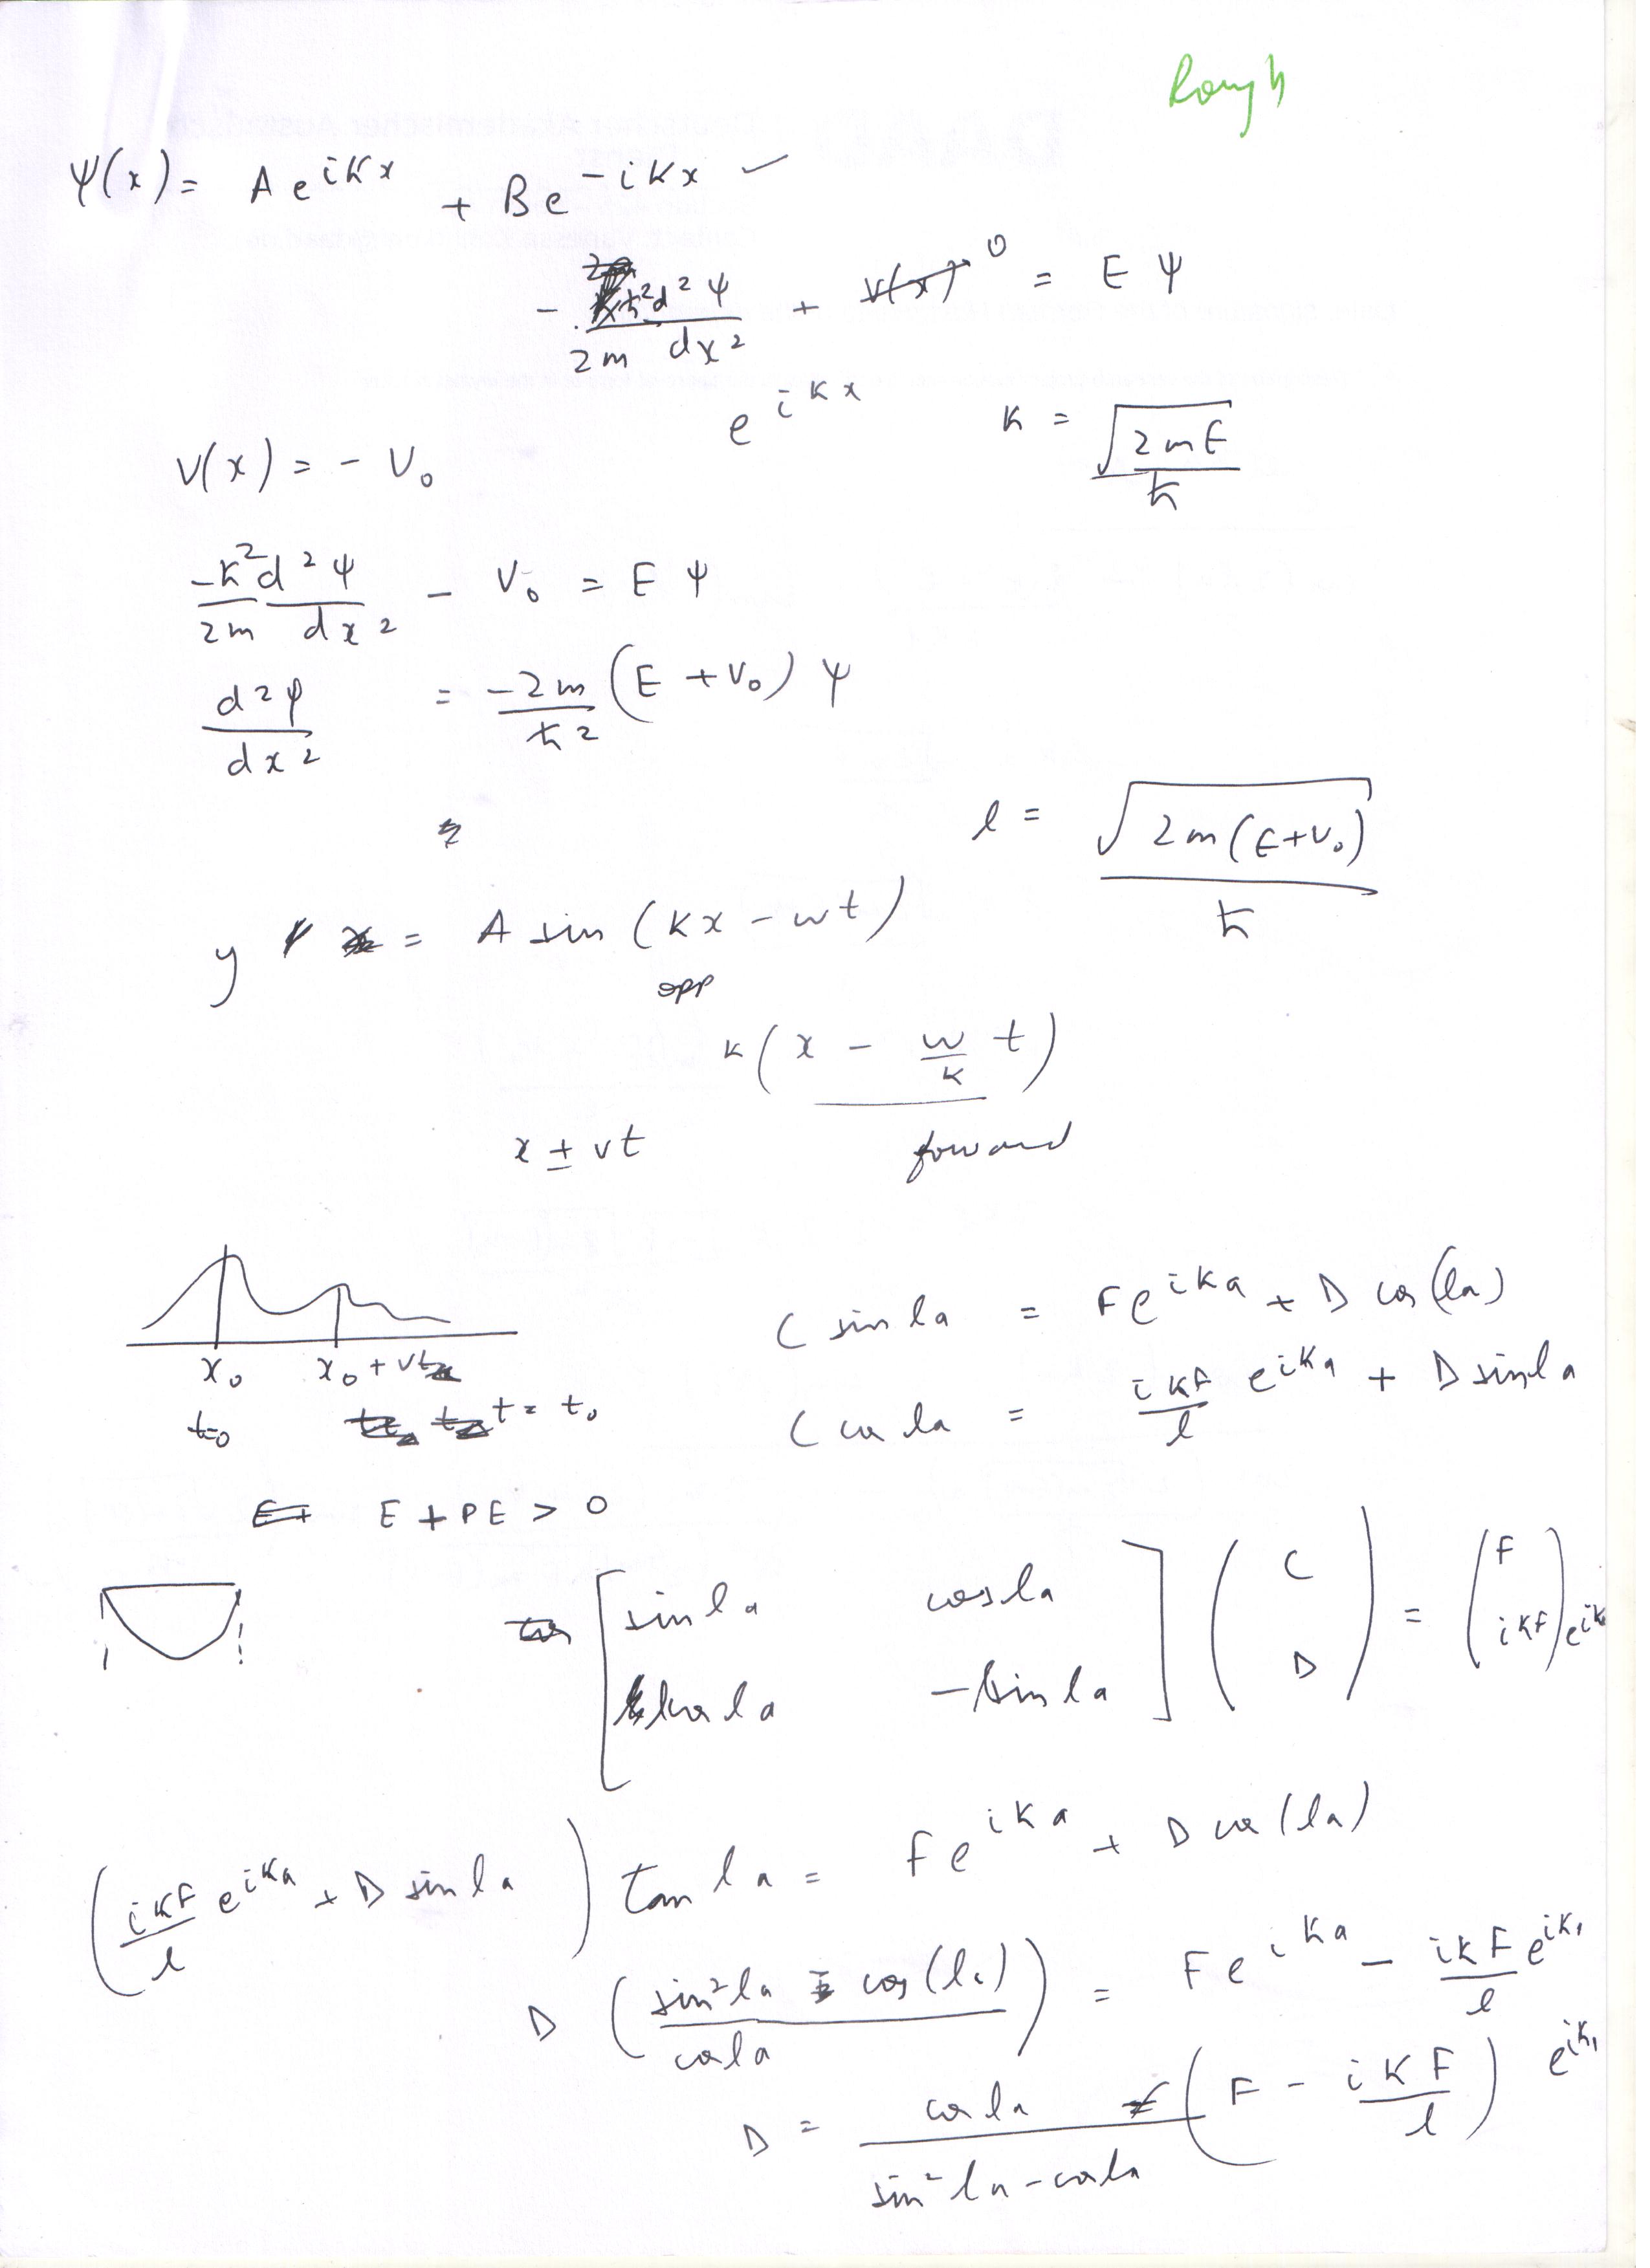 Rough
ψ(x) = A e^{ikx} + B e^{-ikx} ✓
- ħ² d²ψ / 2m dx² + V(x) → 0 = E ψ
e^{ikx}    k = √(2mE) / ħ
V(x) = - V₀
-ħ² d²ψ / 2m dx² - V₀ = E ψ
d²ψ / dx² = -2m / ħ² (E + V₀) ψ
l = √(2m(E+V₀)) / ħ
y = A sin (kx - wt)
opp
k(x - w/k t)
x ± vt    foward
C sin la = F e^{ika} + D cos(la)
x₀    x₀ + vt
C cos la = ikF/l e^{ika} + D sin la
t=0    t = t₀
E + PE > 0
[sin la    cos la] (C) = (F)
[l cos la    -l sin la] (D) = (ikF) e^{ik
(ikF/l e^{ika} + D sin la) tan la = F e^{ika} + D cos(la)
D (sin² la - cos(la) / cos la) = F e^{ika} - ikF/l e^{ik
D = cos la / sin² la - cos la (F - ikF/l) e^{ik